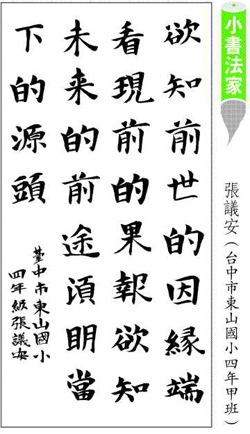 小書法家
張議安(台中市東山國小四年甲班)
欲知前世的因緣端
看現前的果報欲知
未来的前途湏明當
下的源頭
臺中市東山國小
四年級張議安